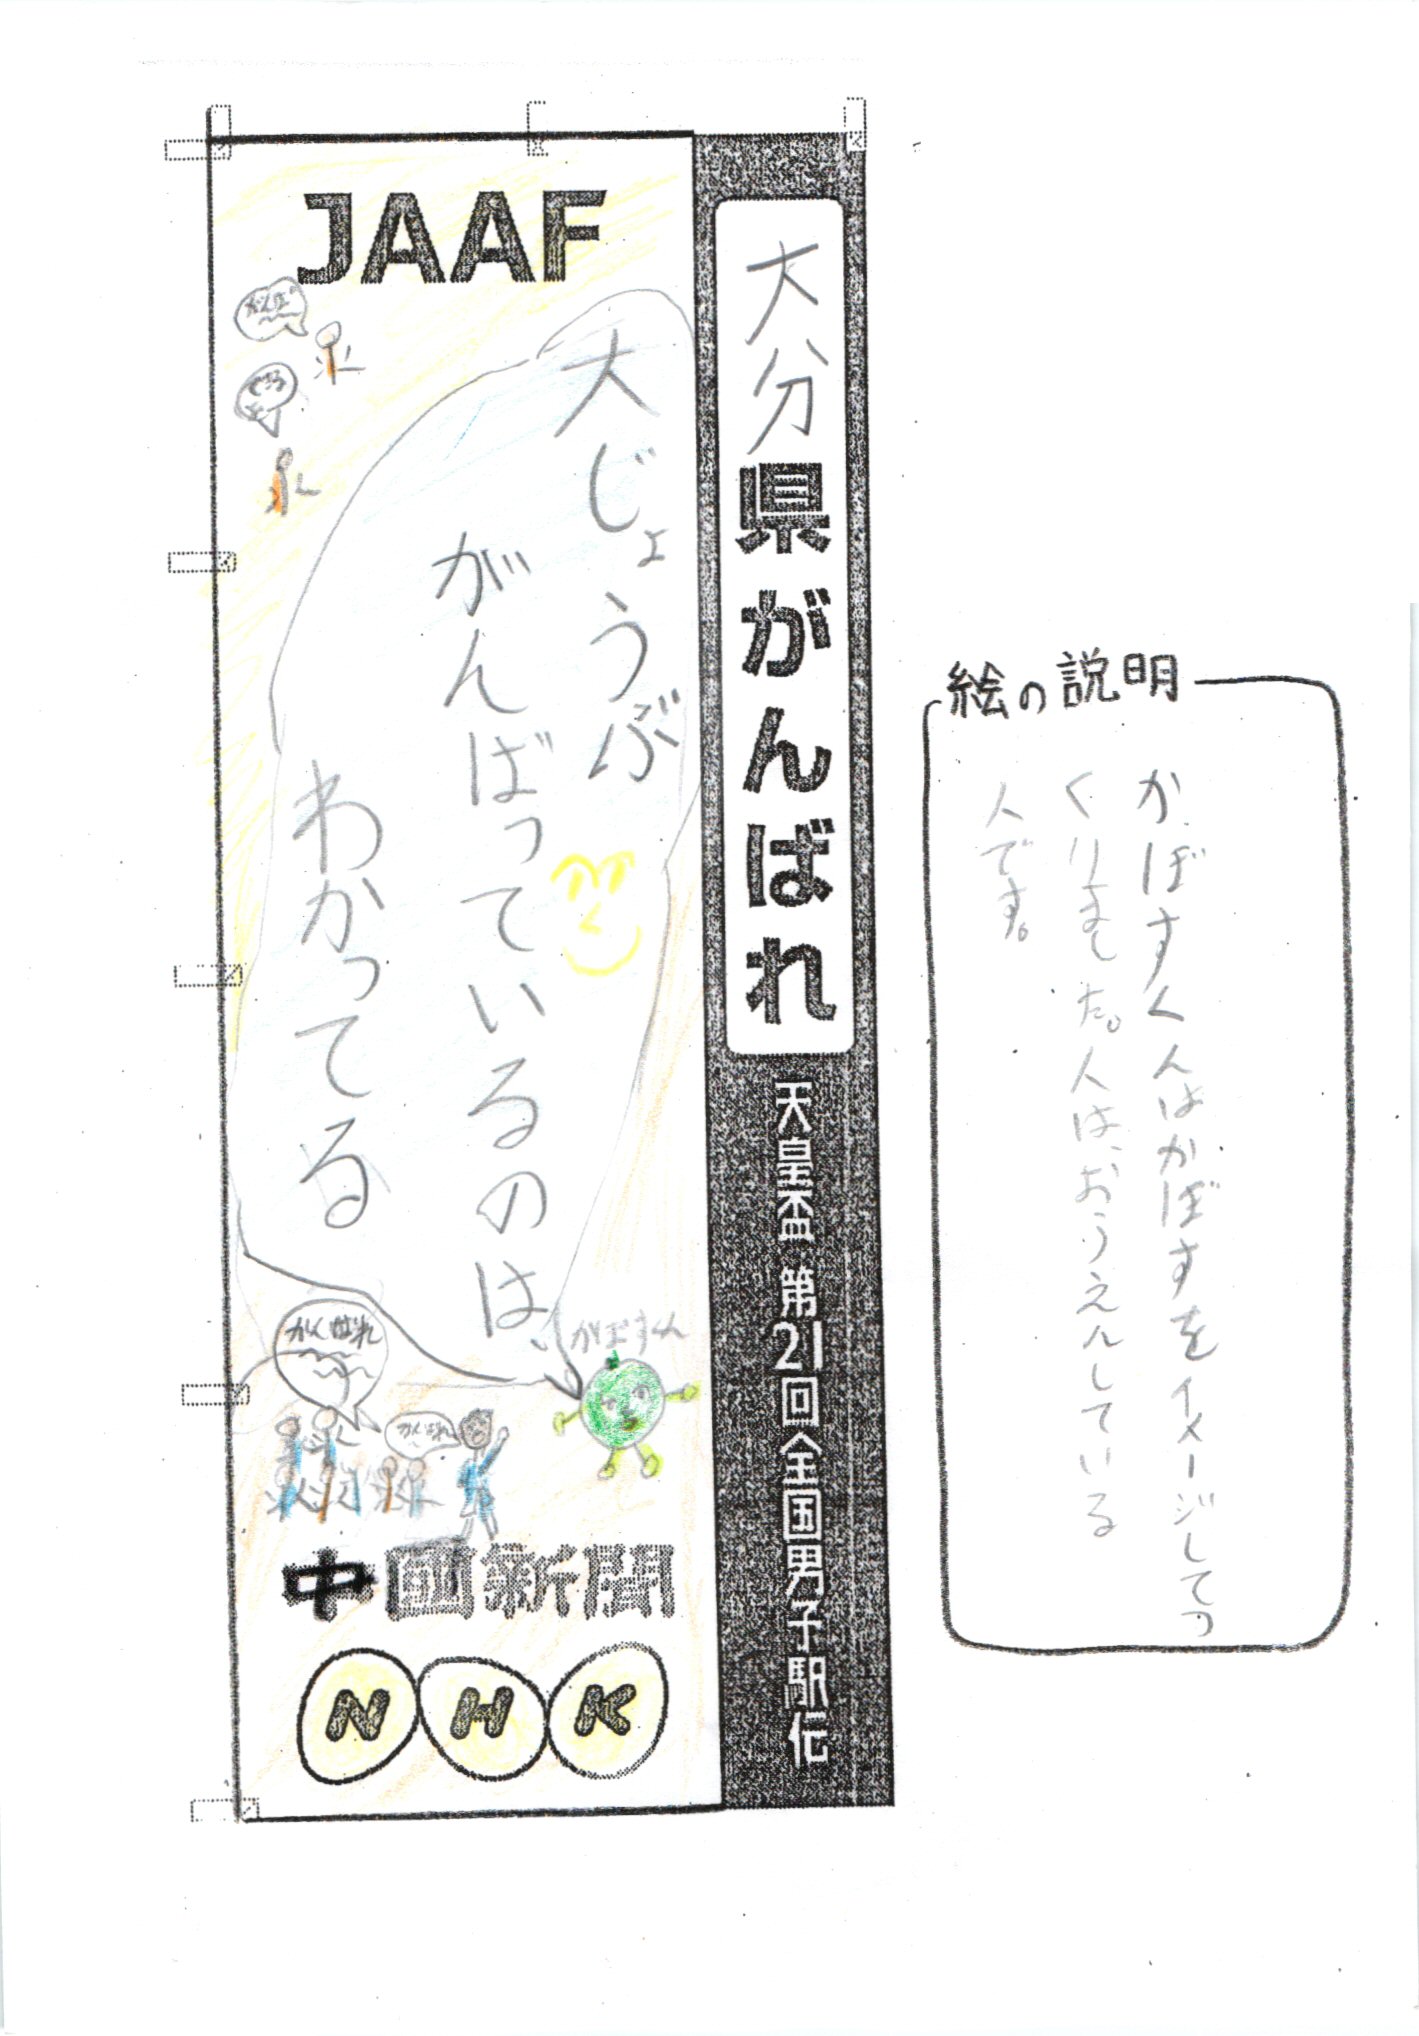 大分県がんばれ
天皇盃 第21回全国男子駅伝
JAAF
大じょうぶ
がんばっているのは、
わかってる
かぼすくん
がんばれ
がんばれ
中国新聞
NHK
絵の説明
かぼすくんはかぼすをイメージしてつ
くりました。人は、おうえんしている
人です。